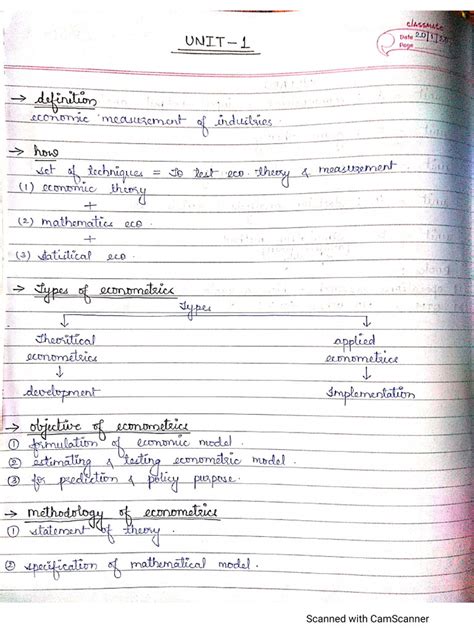 classmate
Date 20/1/20
Page
UNIT-1
→ definition
economic measurement of industries.
→ how
set of techniques = To test eco. theory & measurement
(1) economic theory
+
(2) mathematics eco.
+
(3) statistical eco.
→ Types of econometrics
Types
Theoritical applied
econometrics econometrics
↓ ↓
development Implementation
→ objective of econometrics
① formulation of economic model.
② estimating & testing econometric model.
③ for prediction & policy purpose.
→ methodology of econometrics
① statement of theory.
② specification of mathematical model.
Scanned with CamScanner